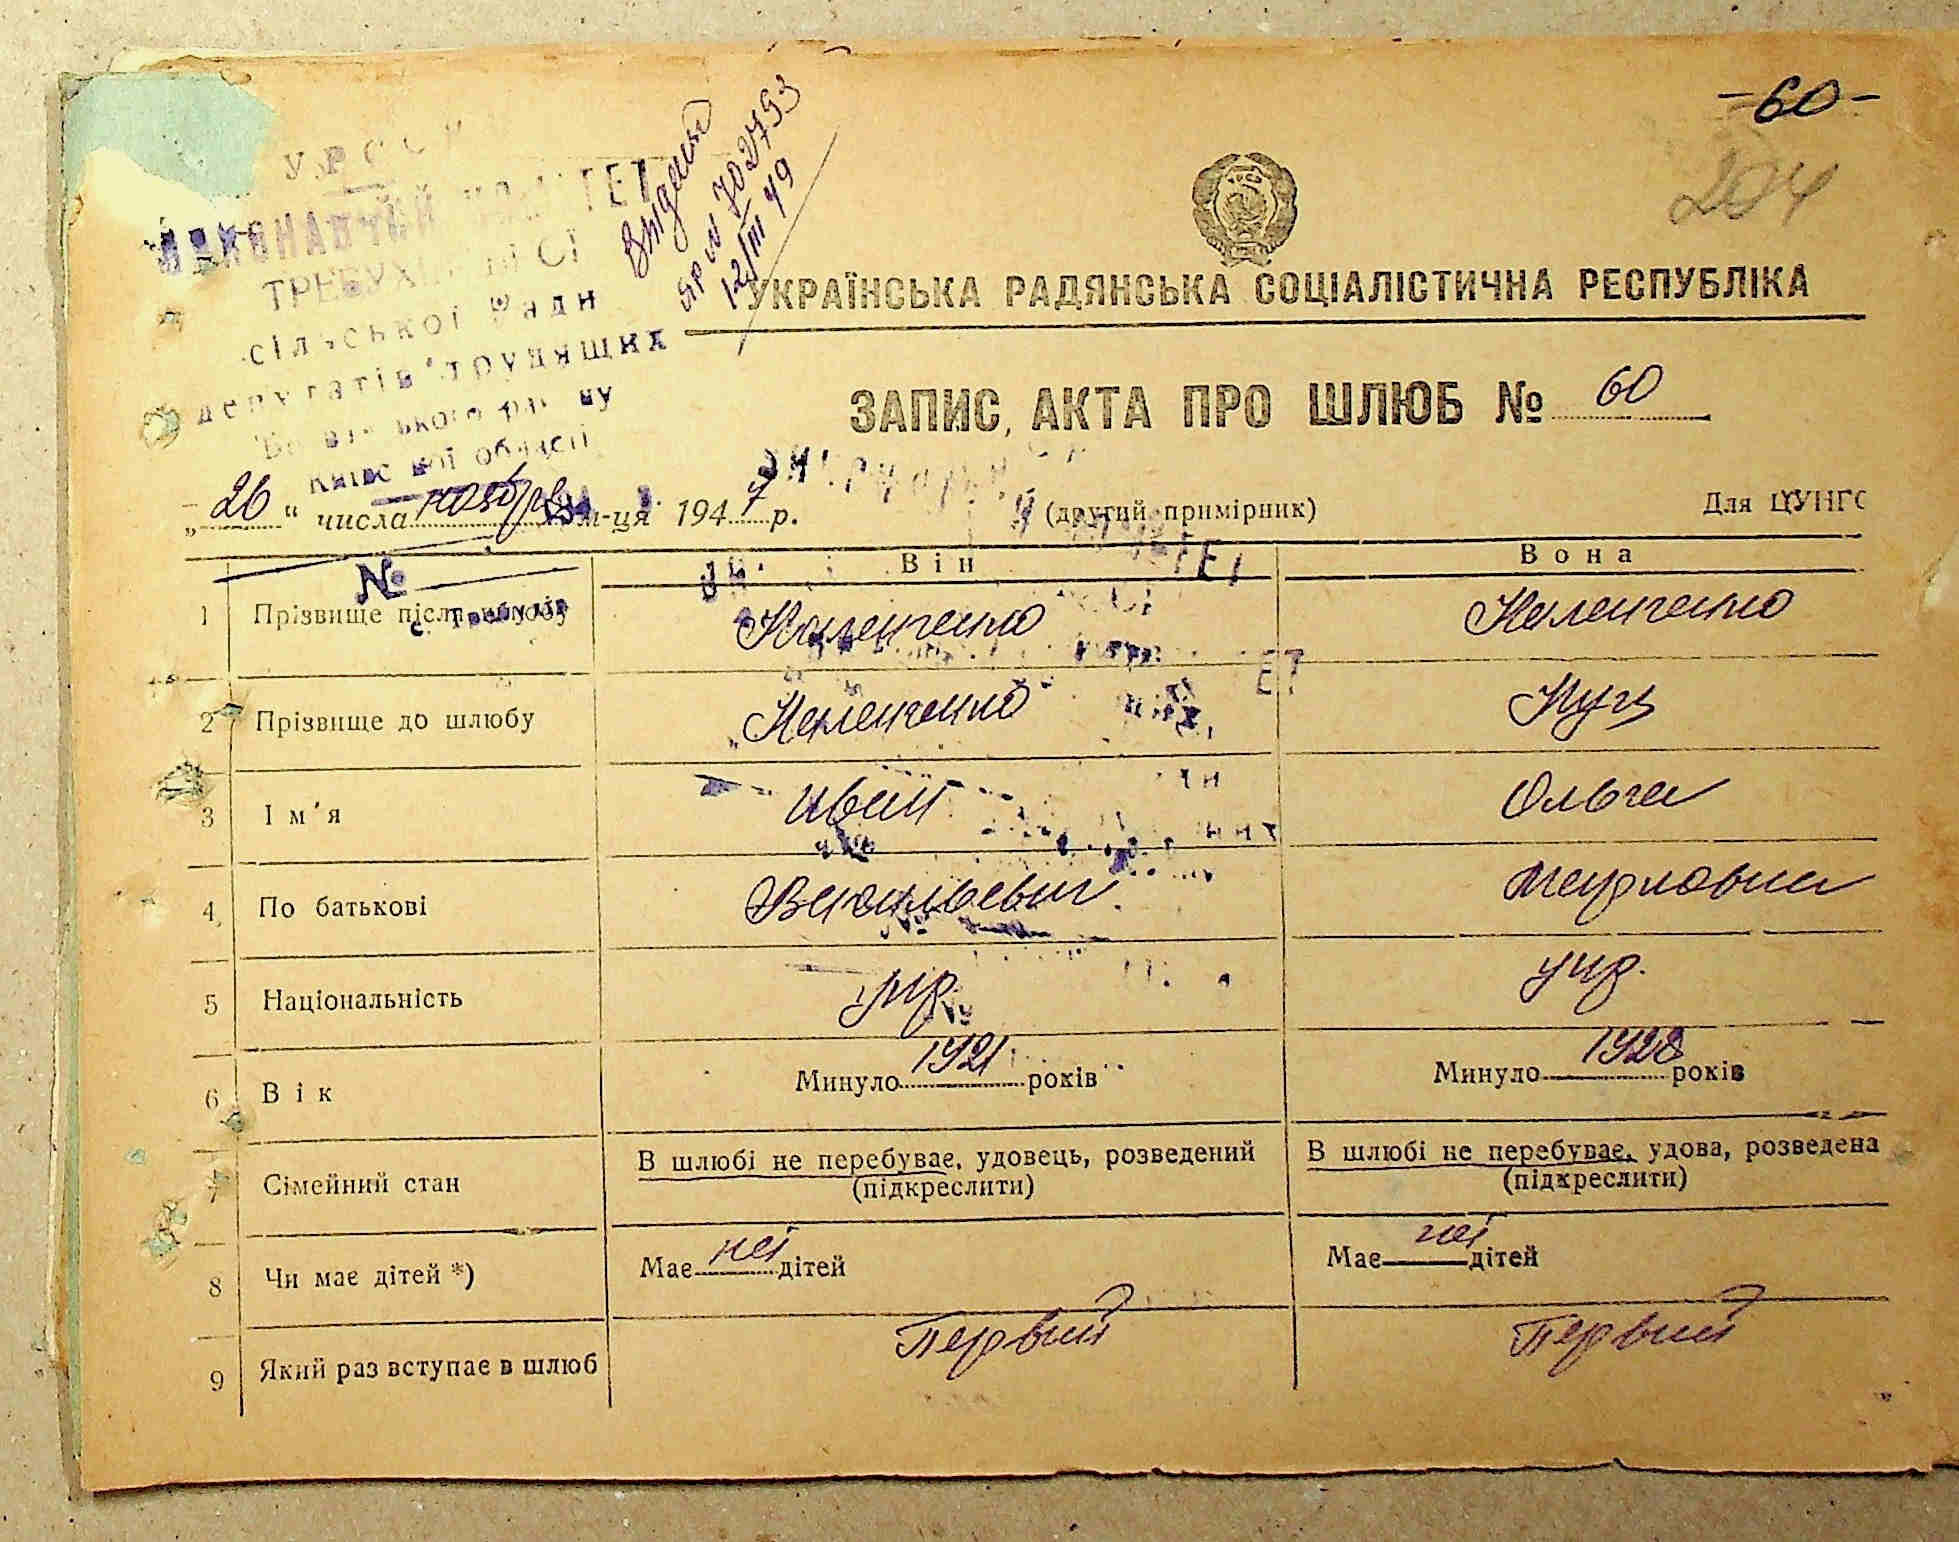 -60-
204
УРСР
ВИКОНАВЧИЙ КОМІТЕТ
сільської Ради
депутатів трудящих
№
с. Требухів
№ 702793
12/III 49
УКРАЇНСЬКА РАДЯНСЬКА СОЦІАЛІСТИЧНА РЕСПУБЛІКА
ЗАПИС АКТА ПРО ШЛЮБ № 60
„26“ числа ноября м-ця 1947 р. (другий примірник) Для ЦУНГО
Він Вона
1 Прізвище після шлюбу Коленченко Коленченко
2 Прізвище до шлюбу Коленченко Куц
3 Ім'я Иван Ольга
4 По батькові Васильевич Марковна
5 Національність укр. укр.
6 Вік Минуло 1921 років Минуло 1928 років
7 Сімейний стан В шлюбі не перебуває, удовець, розведений (підкреслити) В шлюбі не перебуває, удова, розведена (підкреслити)
8 Чи має дітей *) Має неї дітей Має неї дітей
9 Який раз вступає в шлюб Первий Первий